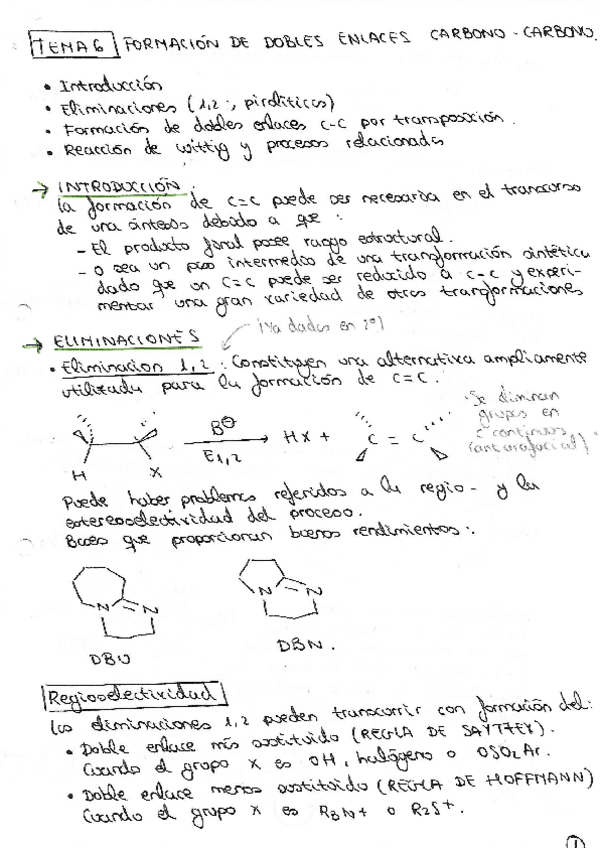 TEMA 6 FORMACIÓN DE DOBLES ENLACES CARBONO-CARBONO.
• Introducción
• Eliminaciones (1,2-, pirolíticas)
• Formación de dobles enlaces C-C por transposición.
• Reacción de Wittig y procesos relacionados
→ INTRODUCCIÓN.
La formación de C=C puede ser necesaria en el transcurso
de una síntesis debido a que:
- El producto final posee rasgo estructural.
- O sea un paso intermedio de una transformación sintética
dado que un C=C puede ser reducido a C-C y experi-
mentar una gran variedad de otras transformaciones
¡Ya dadas en 2º!
→ ELIMINACIONES
• Eliminacion 1,2: Constituyen una alternativa ampliamente
utilizada para la formación de C=C.
• Se eliminan
grupos en
C continuos
(antarafacial)
H X B⊖ E1,2 HX + C = C
Puede haber problemas referidos a la regio- y la
estereoselectividad del proceso.
Bases que proporcionan buenos rendimientos:
N N N N
DBU DBN.
Regioselectividad
Las eliminaciones 1,2 pueden transcurrir con formación del:
• Doble enlace más sustituido (REGLA DE SAYTZEV).
Cuando el grupo X es OH, halógeno o OSO2Ar.
• Doble enlace menos sustituido (REGLA DE HOFFMANN)
Cuando el grupo X es R3N+ o R2S+.
1